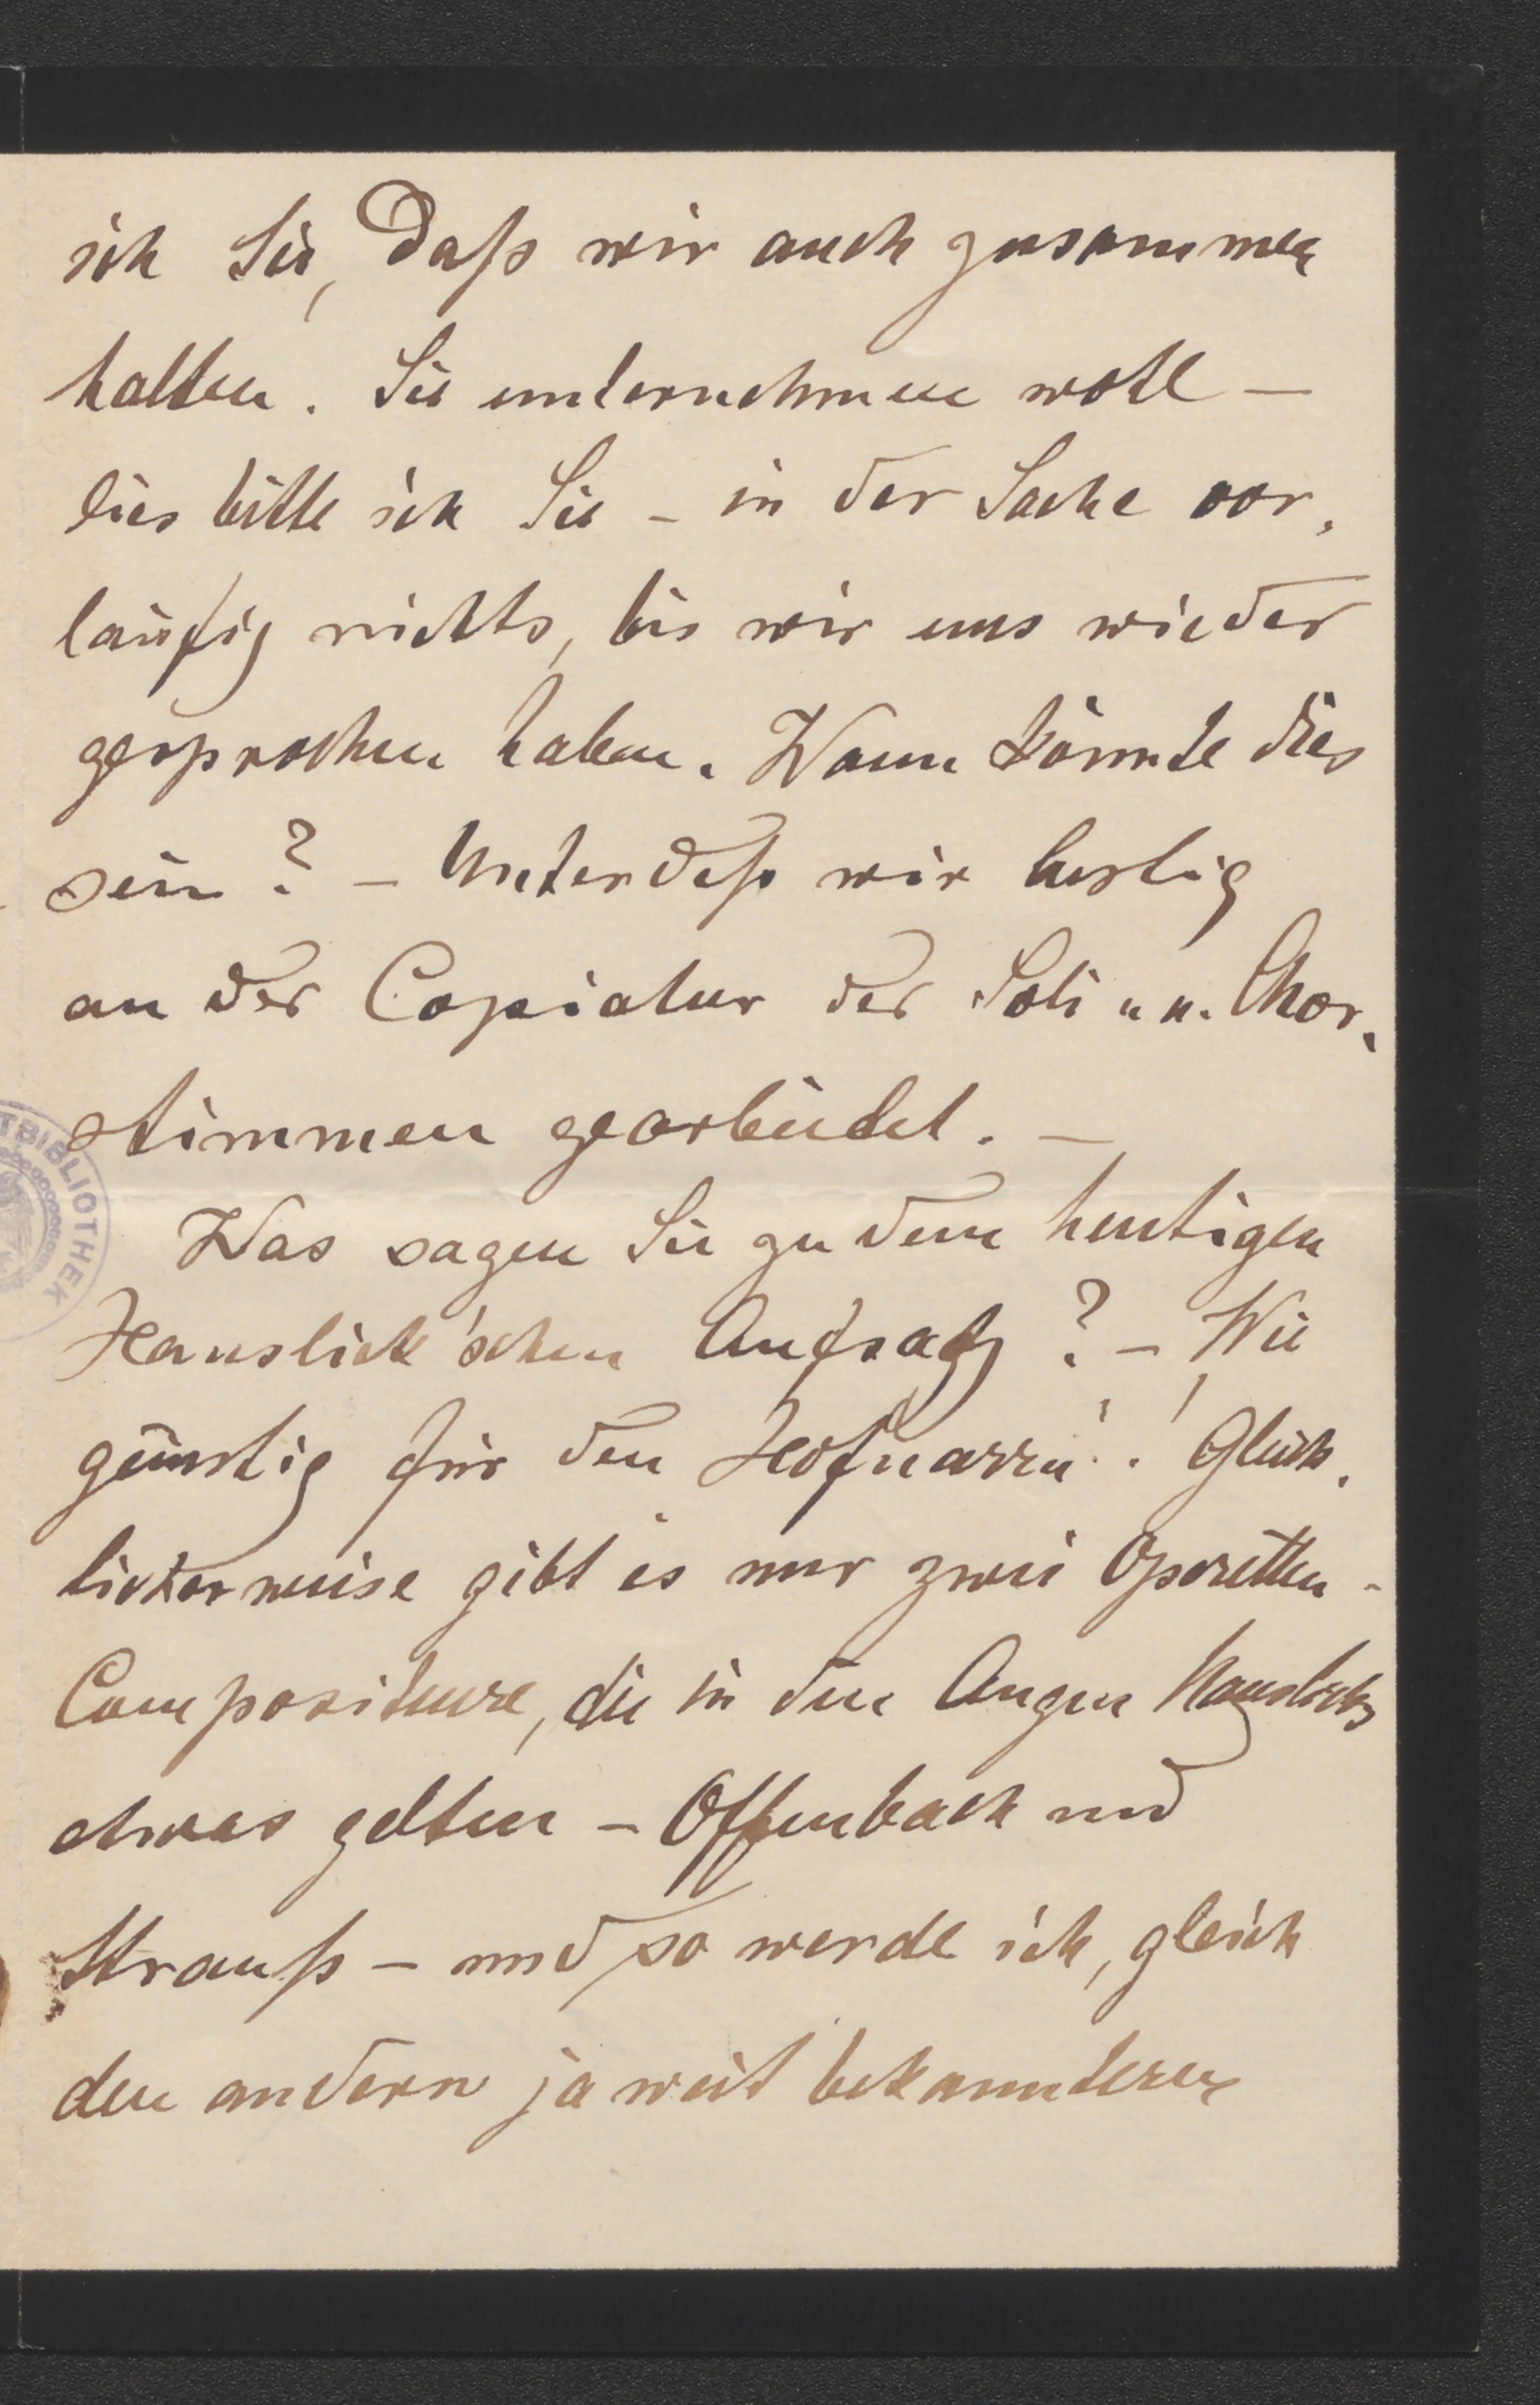 ich Sie, daß wir auch zusammen
halten. Sie unternehmen wohl –
dies bitte ich Sie – in der Sache vor-
läufig nichts, bis wir uns wieder
gesprochen haben. Wann könnte dies
sein? – Unterdeß wir lustig
an der Copiatur der Soli u. Chor-
stimmen gearbeitet. –
Was sagen Sie zu dem heutigen
Hanslick'schen Aufsatz? – Wie
günstig für den „Hofnarren“! Glück-
licherweise gibt es nur zwei Operetten-
Compositeure, die in den Augen Hanslicks
etwas gelten – Offenbach und
Strauß – und so werde ich, gleich
den andern ja weit bekannteren
TBIBLIOTHEK